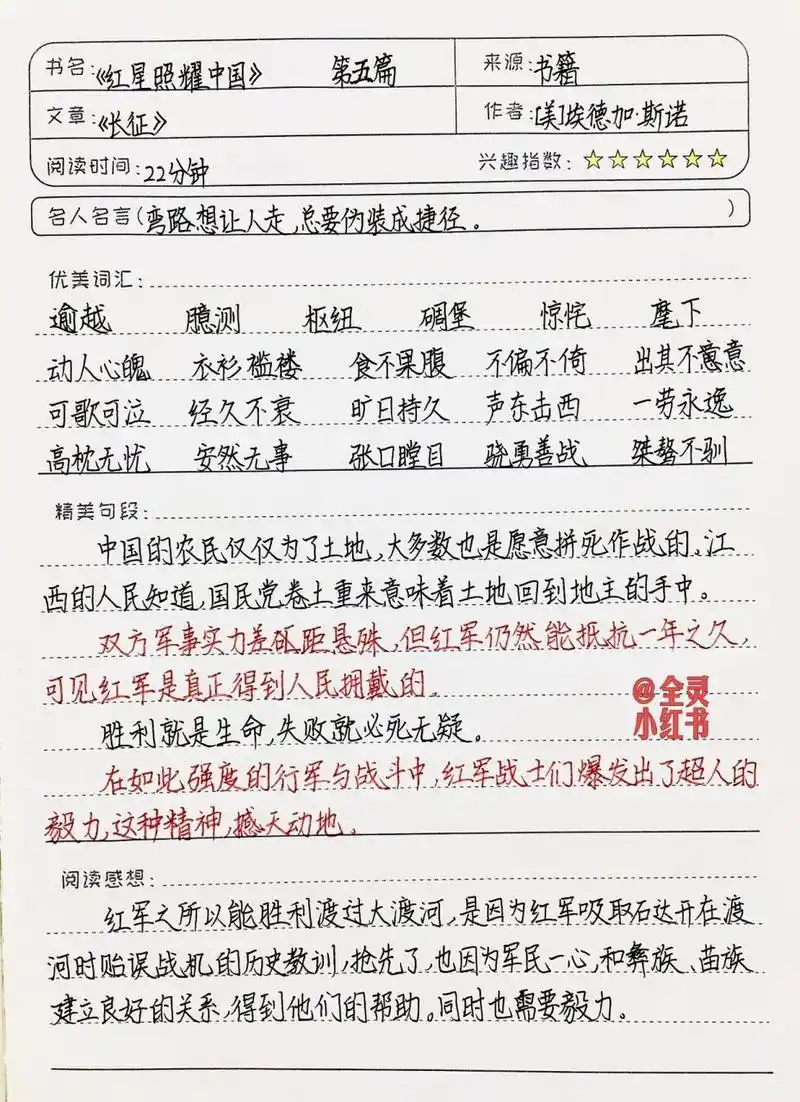 书名:《红星照耀中国》 第五篇 来源:书籍
文章:《长征》 作者:[美]埃德加·斯诺
阅读时间:22分钟 兴趣指数:☆☆☆☆☆☆
名人名言(弯路想让人走,总要伪装成捷径。)
优美词汇:
逾越 臆测 枢纽 碉堡 惊诧 麾下
动人心魄 衣衫褴褛 食不果腹 不偏不倚 出其不意
可歌可泣 经久不衰 旷日持久 声东击西 一劳永逸
高枕无忧 安然无事 张口瞠目 骁勇善战 桀骜不驯
精美句段:
中国的农民仅仅为了土地,大多数也是愿意拼死作战的。江
西的人民知道,国民党卷土重来意味着土地回到地主的手中。
双方军事实力差距悬殊,但红军仍然能抵抗一年之久,
可见红军是真正得到人民拥戴的。
@全灵
小红书
胜利就是生命,失败就必死无疑。
在如此强度的行军与战斗中,红军战士们爆发出了超人的
毅力,这种精神,撼天动地。
阅读感想:
红军之所以能胜利渡过大渡河,是因为红军吸取石达开在渡
河时贻误战机的历史教训,抢先了,也因为军民一心,和彝族、苗族
建立良好的关系,得到他们的帮助。同时也需要毅力。